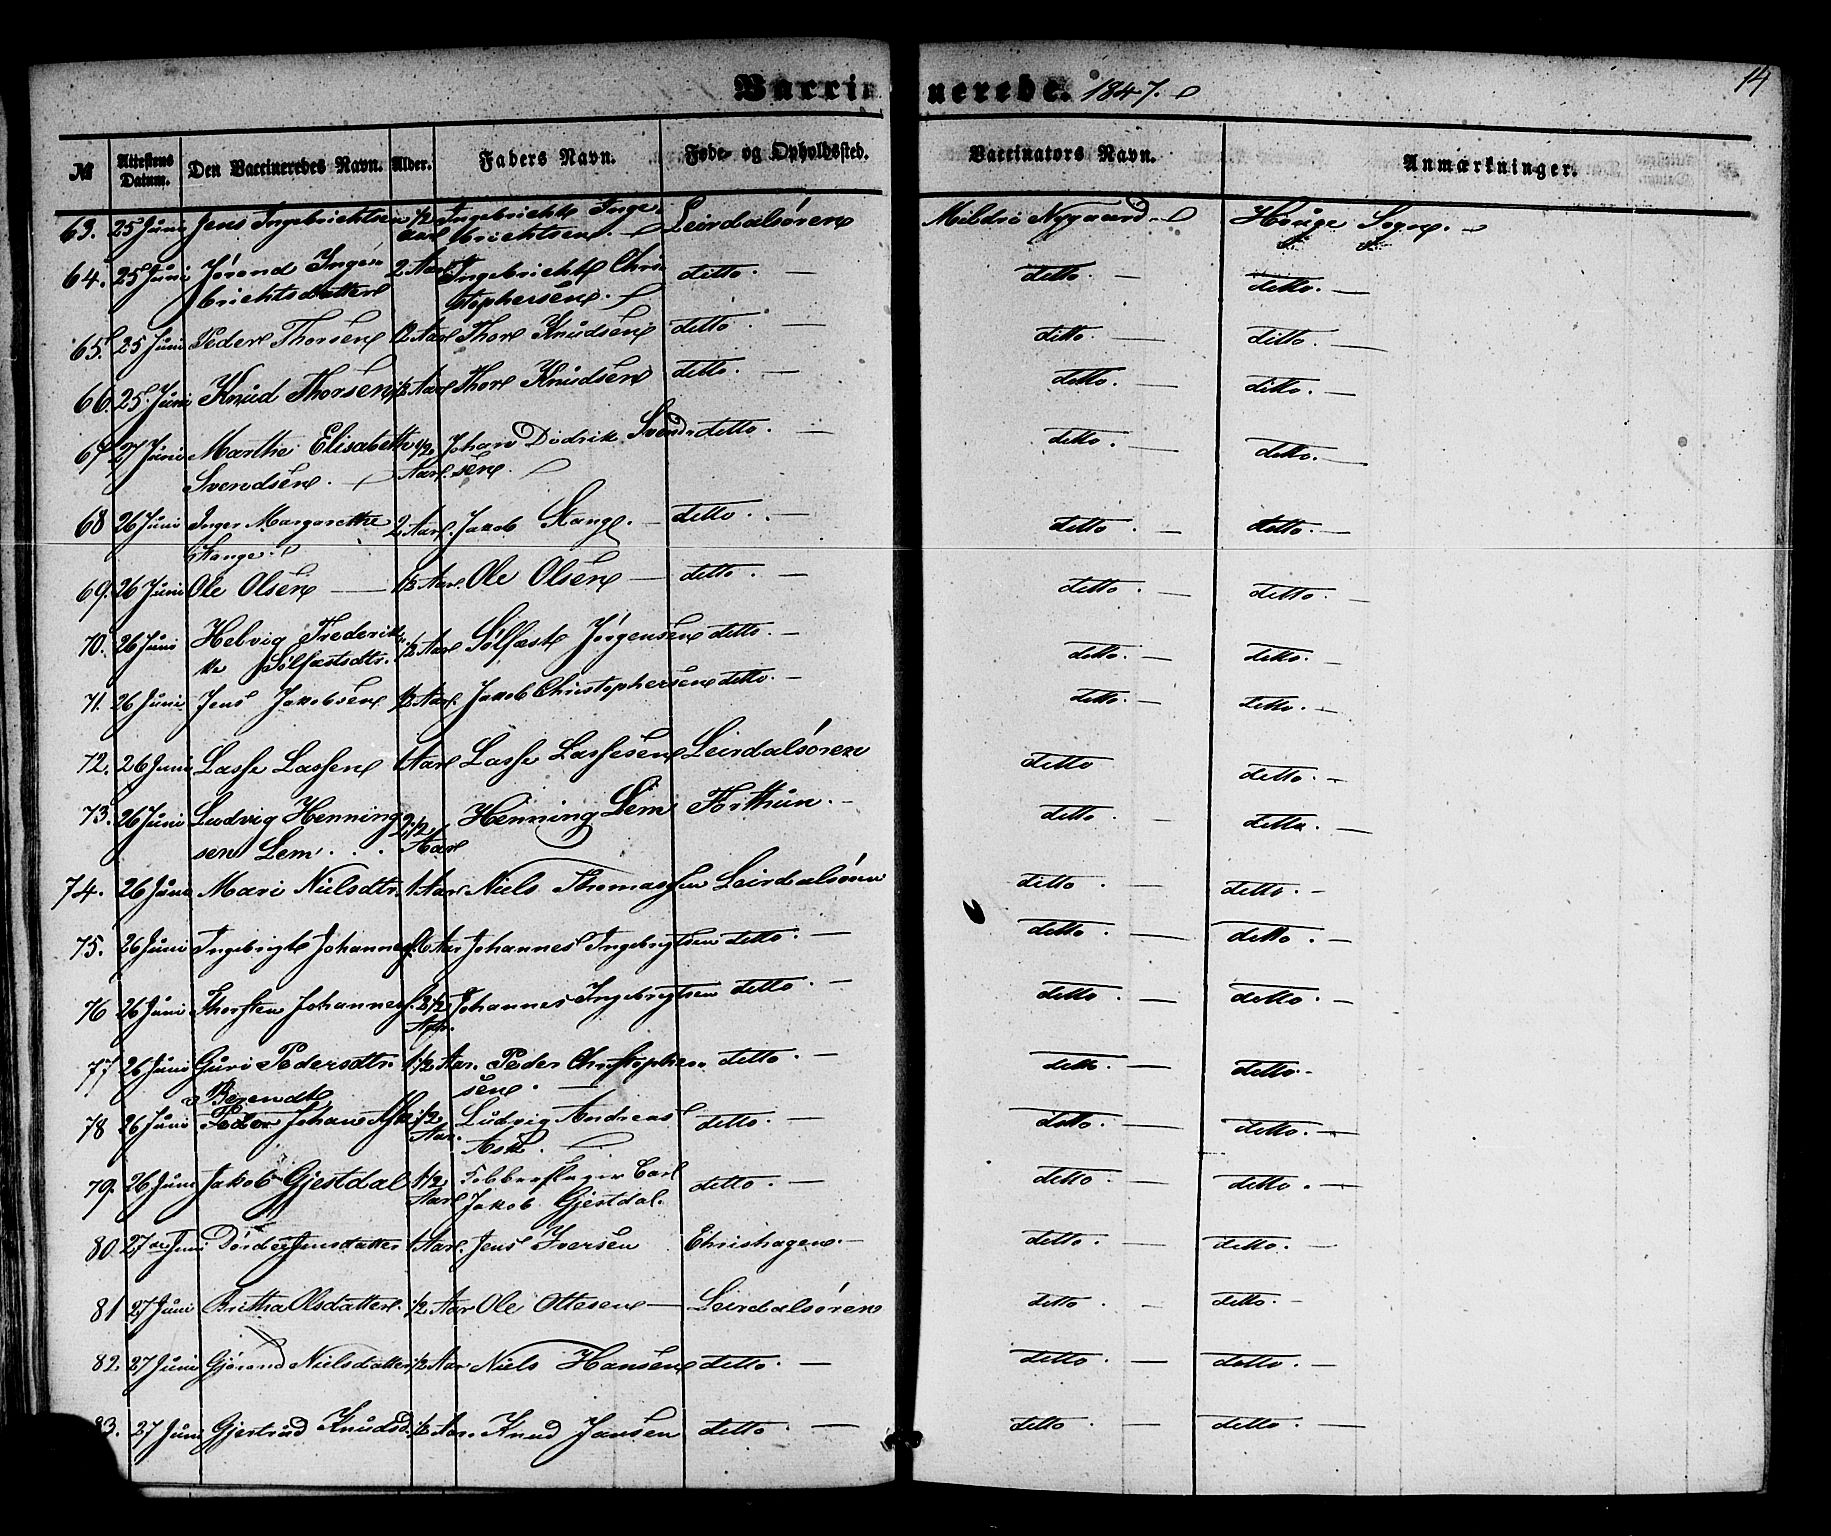 Vaccinerede. 1847.
14
№ Attestens Datum. Den Vaccineredes Navn. Alder. Faders Navn. Føde- og Opholdssted. Vaccinators Navn. Anmærkninger.
63. 25 Juni Jens Ingebrichtsen 1/2 Ingebricht Inge- Leirdalsøren Nygaard Hauge Sogn.
Aar brichtsen.
64. 25 Juni Jørend Inge- 2 Aar Ingebricht Chri- ditto. ditto. ditto.
brichtsdatter stophersen.
65. 25 Juni Peder Thorsen Aar Thor Knudsen ditto. ditto. ditto.
66. 25. Juni Knud Thorsen 1/2 Aar Thor Knudsen ditto. ditto. ditto.
67 27 Juni Marthe Elisabeth 1/2 Johan Didrik Svend- ditto. ditto. ditto.
Svendsen. Aar. sen.
68 26 Juni Inger Margarethe 2 Aar. Jacob Stange. ditto. ditto. ditto.
Stange.
69. 26 Juni Ole Olsen 1/2 Aar. Ole Olsen ditto. ditto. ditto.
70. 26 Juni Helvig Frederik- 1/2 Aar Sølfæst Jørgensen ditto. ditto. ditto.
ke Sølfæstsdtr.
71. 26 Juni Jens Jakobsen 1/2 Aar. Jakob Christophersen ditto. ditto. ditto.
72. 26 Juni Lasse Lassen 1 Aar Lasse Lassesen Leirdalsøren ditto ditto.
73. 26 Juni Ludvig Henning 2 1/2 Henning Lem Forthun. ditto. ditto.
sen Lem. Aar
74. 26 Juni Mari Nielsdtr. 1 Aar Niels Thomassen Leirdalsøren ditto. ditto.
75. 26 Juni Ingebrigt Johannes. 6 Aar Johannes Ingebrigtsen ditto. ditto. ditto.
76 26 Juni Thorsten Johannes. 3 1/2 Johannes Ingebrigtsen ditto. ditto. ditto.
Aar.
77 26 Juni Guri Pedersdtr. 1 1/2 Aar. Peder Christopher- ditto. ditto. ditto.
sen.
Berendt
78 26 Juni Peder Johan Ask 1/2 Ludvig Andreas ditto. ditto. ditto.
Aar. Ask.
79. 26 Juni Jakob Gjestdal 1 1/2 Kobberslager Carl ditto. ditto. ditto.
Aar Jakob Gjestdal.
80. 27de Juni Dørdei Jensdatter 1 Aar. Jens Iversen Ehrishagen. ditto. ditto.
81 27 Juni Britha Olsdatter. 1/2 Aar Ole Ottesen Leirdalsøren ditto. ditto.
82. 27 Juni Gjørand Nielsdatter 1/2 Aar. Niels Hansen ditto. ditto. ditto.
83. 27 Juni Gjertrud Knudsd. 1/2 Aar. Knud Jansen ditto. ditto. ditto.